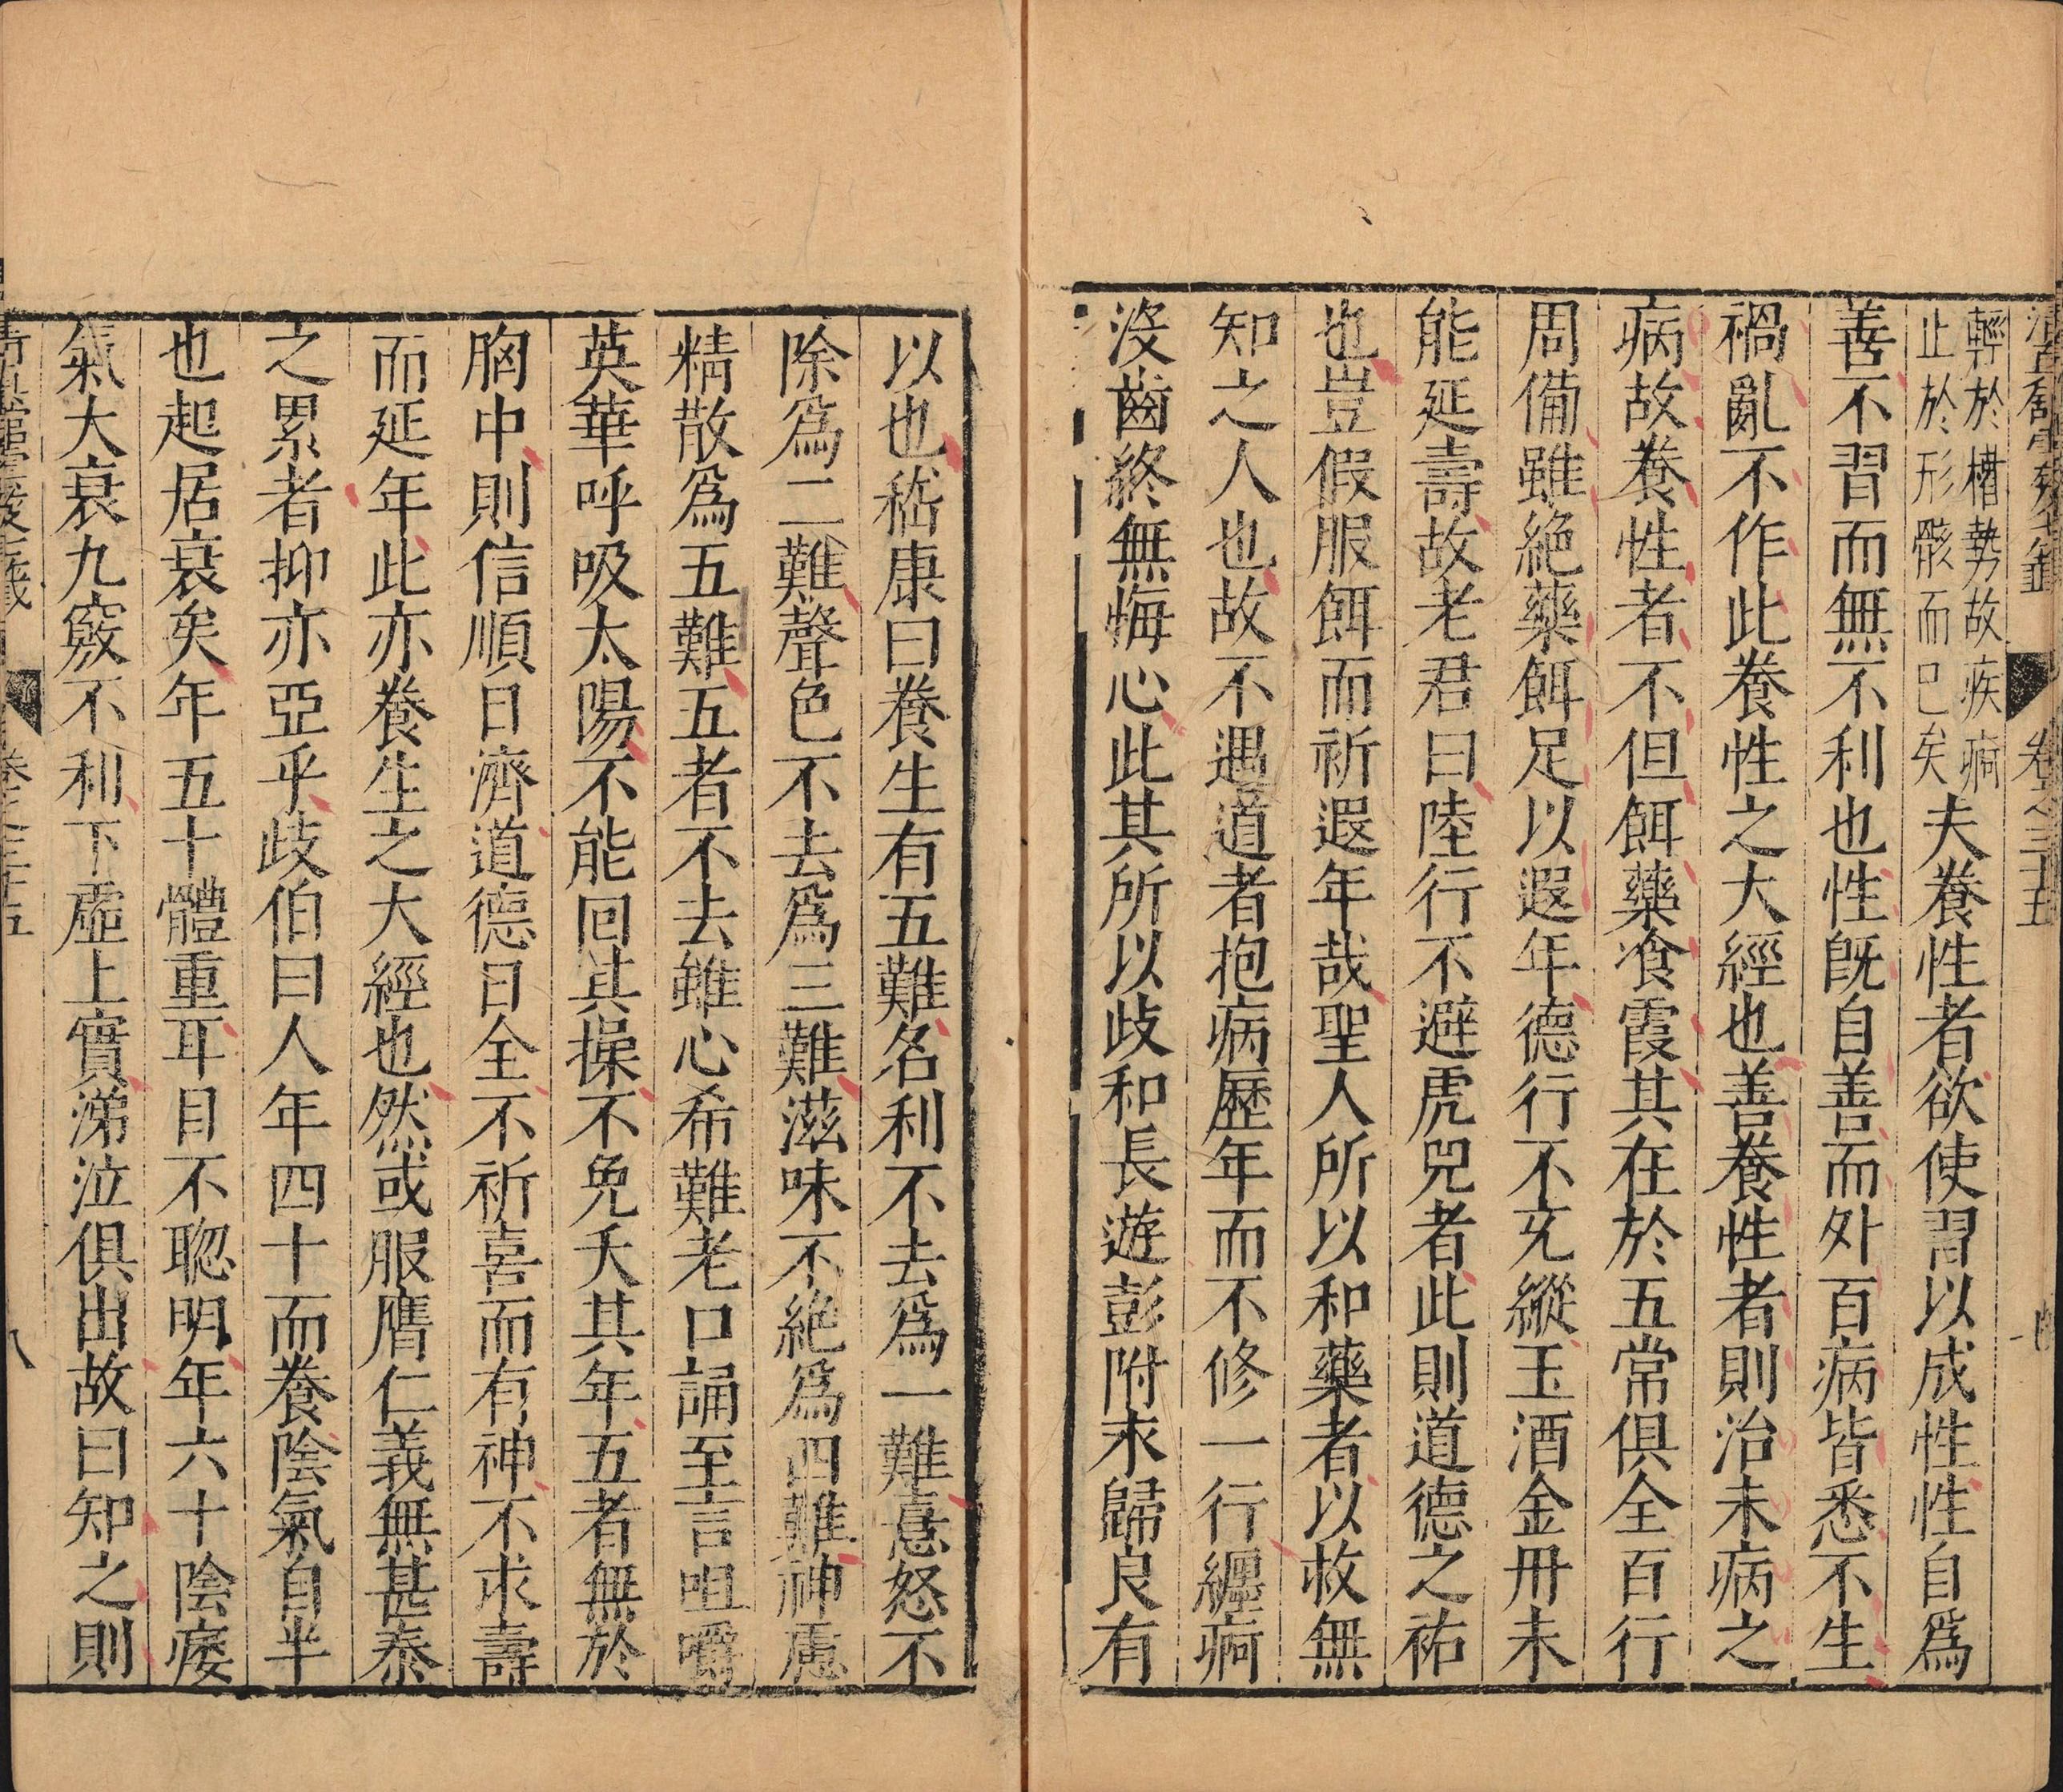 卷之三十五
輕於櫓勢故疾痾
止於形骸而已矣
夫養性者欲使習以成性性自爲
善不習而無不利也性既自善而外百病皆悉不生
禍亂不作此養性之大經也善養性者則治未病之
病故養性者不但餌藥飡霞其在於五常俱全百行
周備雖絶藥餌足以遐年德行不充縱玉酒金丹未
能延壽故老君曰陸行不避虎兕者此則道德之祐
也豈假服餌而祈遐年哉聖人所以和藥者以救無
知之人也故不遇道者抱病歷年而不修一行纏痾
沒齒終無悔心此其所以歧和長遊彭附永歸良有
以也嵇康曰養生有五難名利不去爲一難憙怒不
除爲二難聲色不去爲三難滋味不絶爲四難神慮
精散爲五難五者不去雖心希難老口誦至言咀嚼
英華呼吸太陽不能回其操不免夭其年五者無於
胸中則信順日濟道德日全不祈喜而有神不求壽
而延年此亦養生之大經也然或服膺仁義無甚泰
之累者抑亦亞乎歧伯曰人年四十而養陰氣自半
也起居衰矣年五十體重耳目不聦明年六十陰痿
氣大衰九竅不利下虛上實涕泣俱出故曰知之則
卷之三十五
八